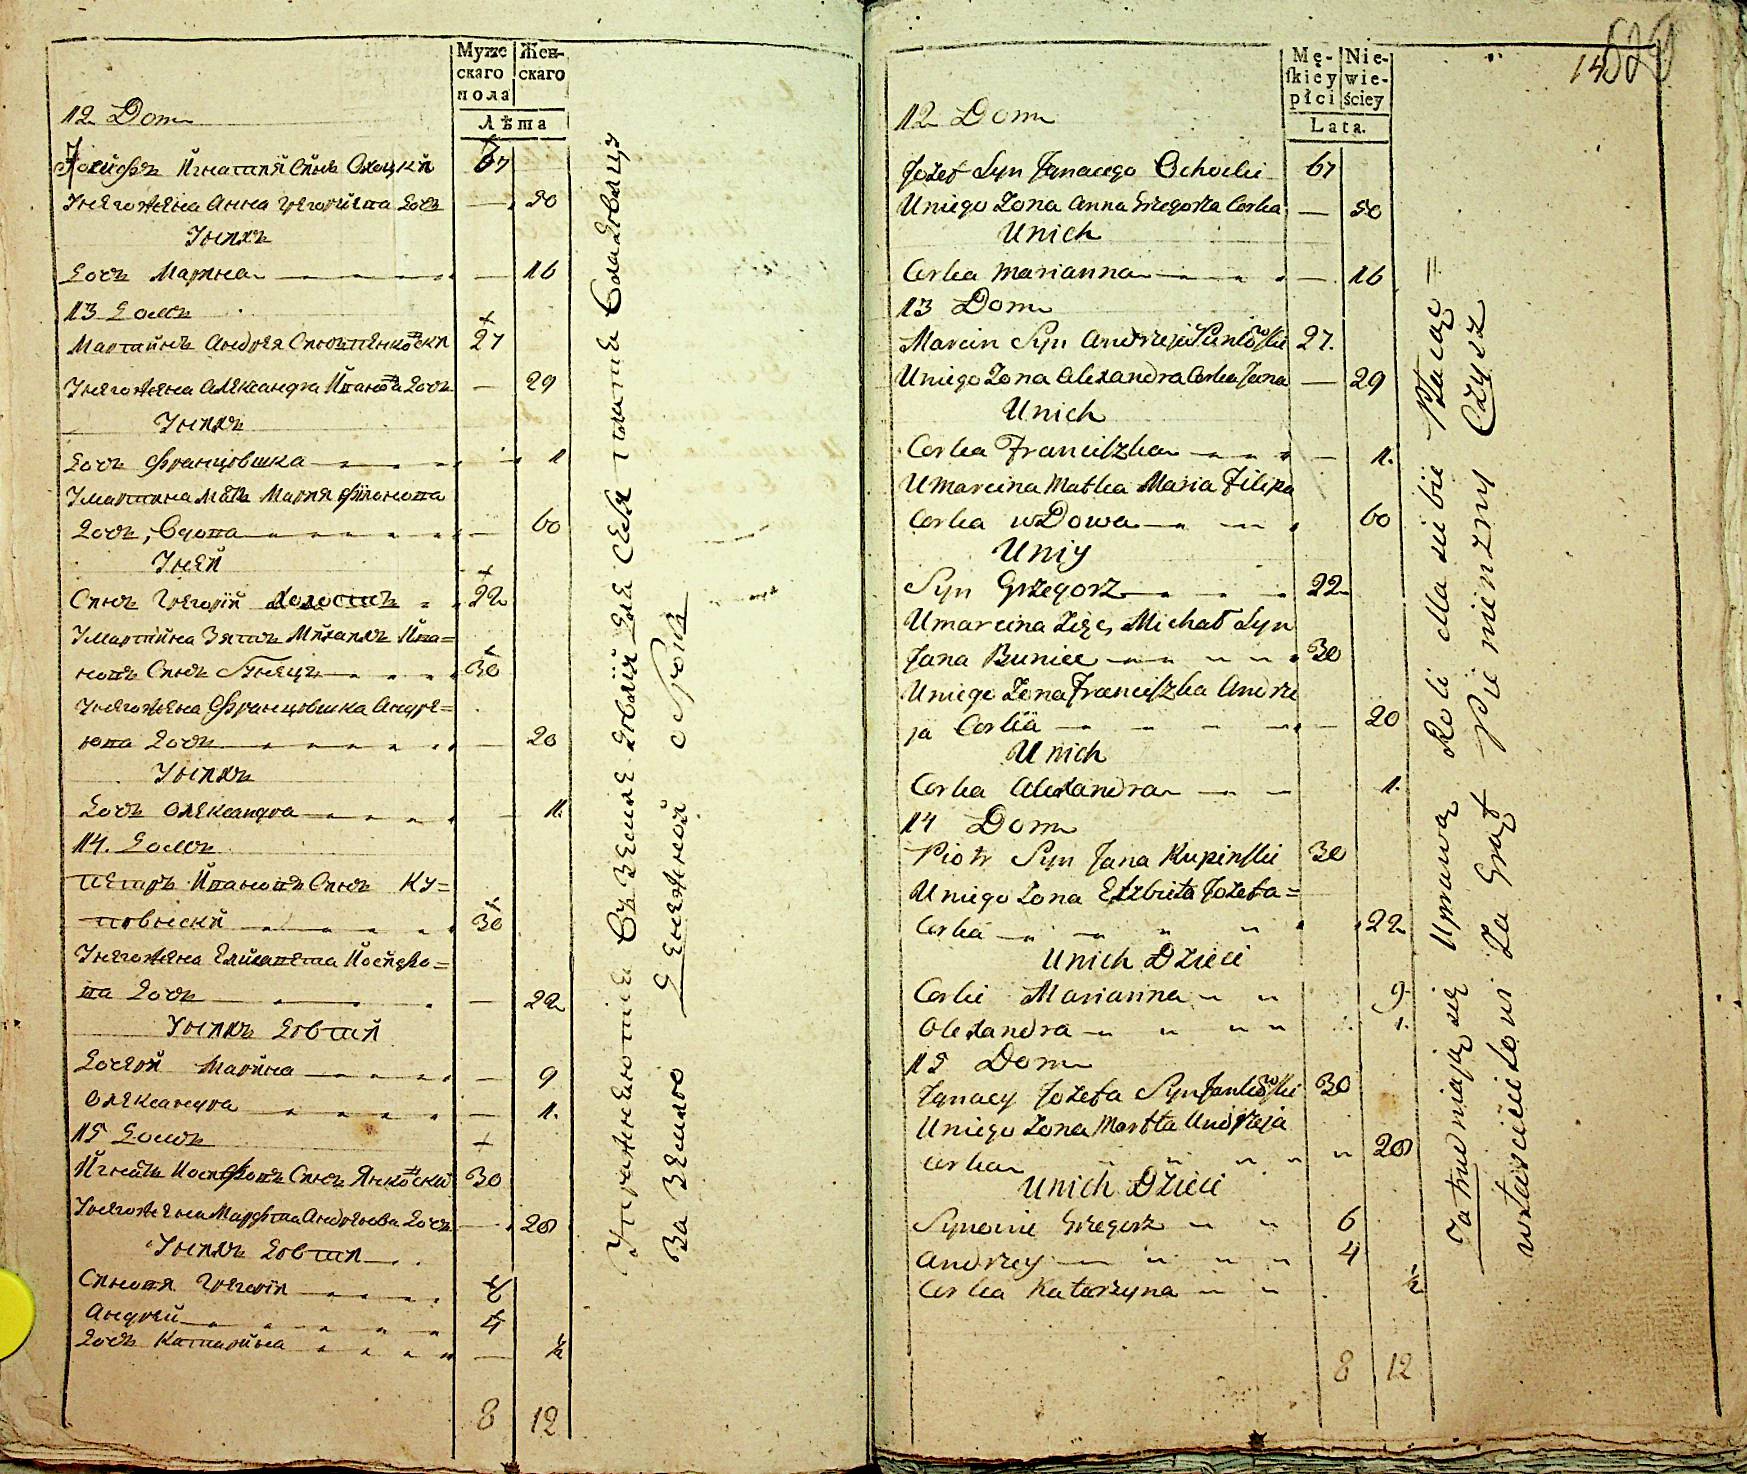 Мужескаго пола
Женскаго
Лѣта
12 Dom
Іосифъ Игнатія Сынъ Охоцкій 67
Унегожена Анна Григорьева Дочь — 50
Унихъ
Дочь Марина — 16
13 Домъ
Мартинъ Андрея Сынъ 27
Унегожена Александра Иванова Дочь — 29
Унихъ
Дочь Францишка 1
Умартина Мать Марія Филипова
Дочь, Вдова — 60
Уней
Сынъ Григорій Холостъ 22
Умартина Зять Михаилъ Ива=
новъ Сынъ 30
Унегожена Францишка Андре=
ева Дочь — 20
Унихъ
Дочь Олександра — 1.
14. Домъ
Петръ Ивановъ Сынъ Ку=
повиский 30
Унегожена Елисавета Иосифо=
ва Дочь — 22
Унихъ Дѣти
Дочери Марина — 9
Олександра — 1.
15 Домъ
Игнатъ Иосифовъ Сынъ Янковский 30
Унегожена Марфа Андреева Дочь — 28
Унихъ Дѣти
Сыновья Григорій 6
Андрей 4
Дочь Катарина — ½
8 12
Упражняются Въ Земледѣліи Для Себя платя Владѣльцу
За Землю Денежной оброкъ
Mę-skiey płci
Nie-wie-ściey
Lata.
12 Dom
Jozef Syn Jgnacego Ochocki 67
Uniego Zona Anna Grzegorza Corka — 50
Unich
Corka Marianna — 16
13 Dom
Marcin Syn Andrzeja 27.
Uniego Zona Alexandra Corka Jana — 29
Unich
Corka Franciszka — 1.
Umarcina Matka Maria Filipa
Corka wDowa 60
Uniy
Syn Grzegorz 22
Umarcina Zięć Michał Syn
Jana Buniec 30
Uniego Zona Franciszka Andrze
ja Corka — 20
Unich
Corka Alexandra 1.
14 Dom
Piotr Syn Jana Kupinski 30
Uniego Zona Elzbieta Jozefa=
Corka 22
Unich Dzieci
Corki Marianna 9
Olexandra 1.
15 Dom
Jgnacy Jozefa Syn Jankowski 30
Uniego Zona Marta Andrzeja
Corka 28
Unich Dzieci
Synowie Grzegorz 6
Andrzey 4
Corka Katarzyna ½
8 12
Zatrudniają się Uprawą Roli dla siebie Płacąc =
własciścielowi Za Grunt Pieniezny Czysz